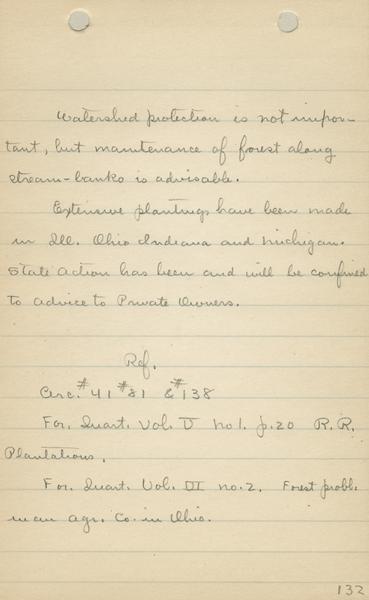 Watershed protection is not impor-
tant, but maintenance of forest along
stream-banks is advisable.
Extensive plantings have been made
in Ill. Ohio Indiana and Michigan.
State action has been and will be confined
to advice to Private Owners.
Ref.
Circ. #41 #81 & #138
For. Quart. Vol. V no 1. p. 20 R.R.
Plantations.
For. Quart. Vol. VI no. 2. Forest probl.
in an agr. Co. in Ohio.
132